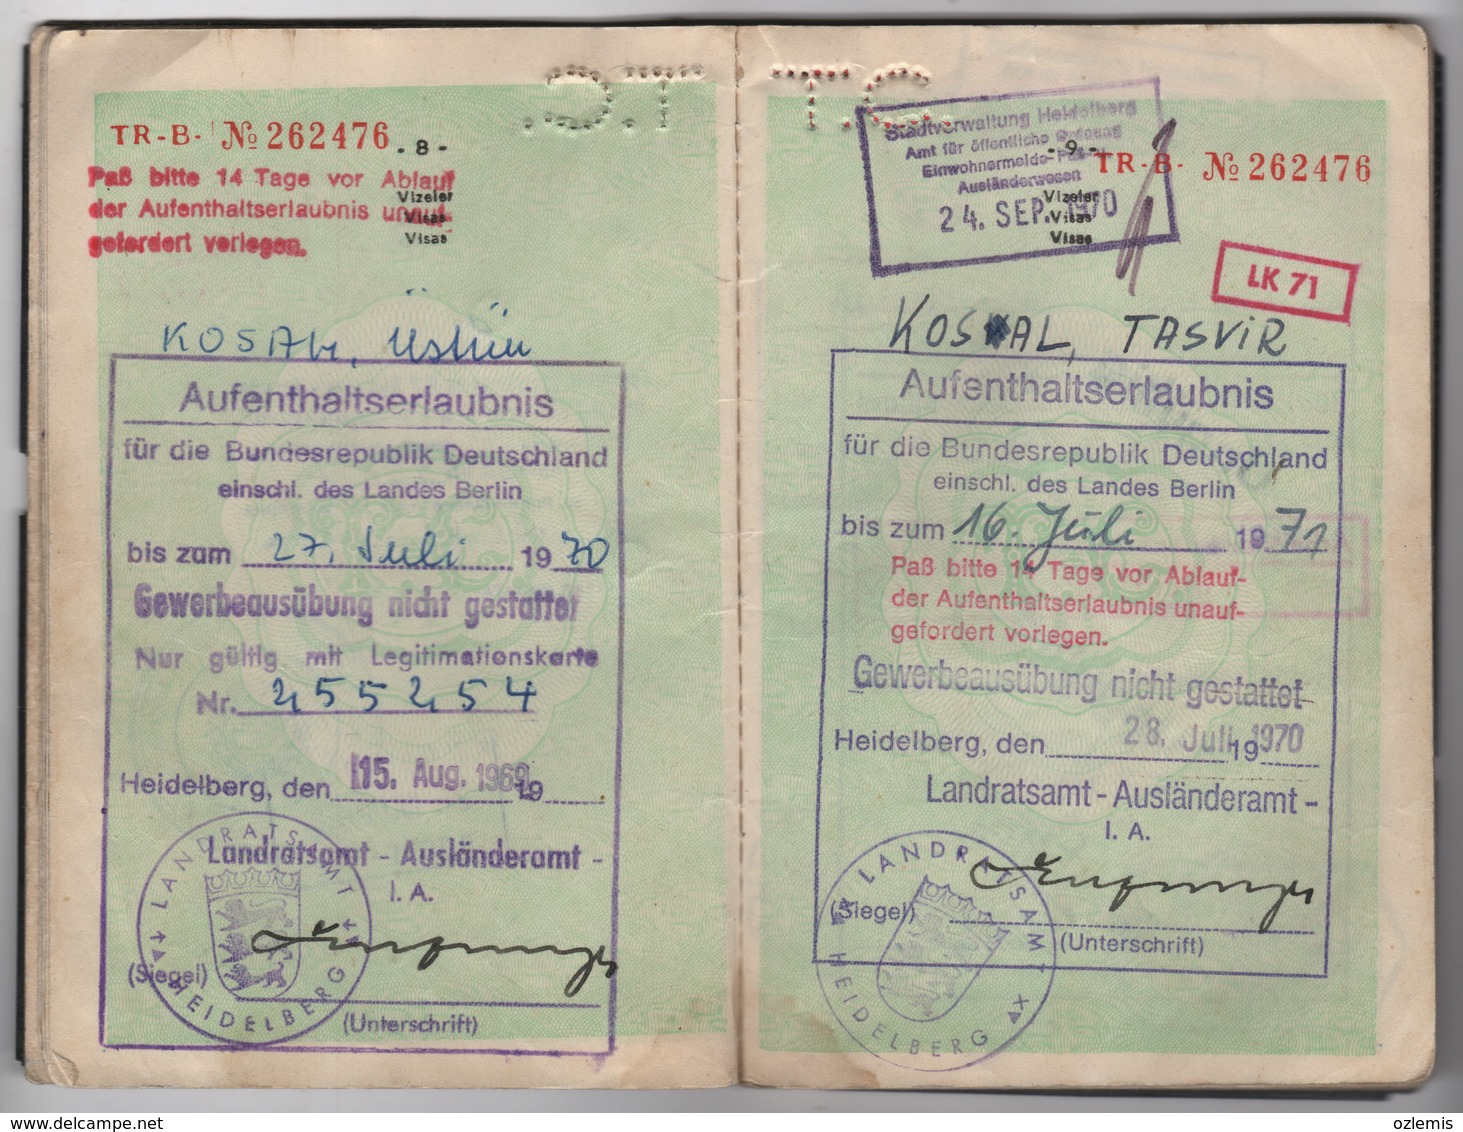 TR-B- № 262476
- 8 -
Paß bitte 14 Tage vor Ablauf
der Aufenthaltserlaubnis unauf-
gefordert vorlegen.
Vizeler
Visas
Visas
KOSAL, Üstün
Aufenthaltserlaubnis
für die Bundesrepublik Deutschland
einschl. des Landes Berlin
bis zum 27. Juli 1970
Gewerbeausübung nicht gestattet
Nur gültig mit Legitimationskarte
Nr. 455454
Heidelberg, den 15. Aug. 1969 19
Landratsamt - Ausländeramt -
I. A.
(Siegel)
(Unterschrift)
LANDRATSAMT
HEIDELBERG
T.C.
Stadtverwaltung Heidelberg
Amt für öffentliche Ordnung
Einwohnermelde-Paß-
Ausländerwesen
24. SEP. 1970
- 9 -
TR-B- № 262476
Vizeler
Visas
Visas
LK 71
KOSAL, TASVİR
Aufenthaltserlaubnis
für die Bundesrepublik Deutschland
einschl. des Landes Berlin
bis zum 16. Juli 1971
Paß bitte 14 Tage vor Ablauf-
der Aufenthaltserlaubnis unauf-
gefordert vorlegen.
Gewerbeausübung nicht gestattet
Heidelberg, den 28. Juli 1970 19
Landratsamt - Ausländeramt -
I. A.
(Siegel)
(Unterschrift)
LANDRATSAMT
HEIDELBERG
delcampe.net
ozlemis